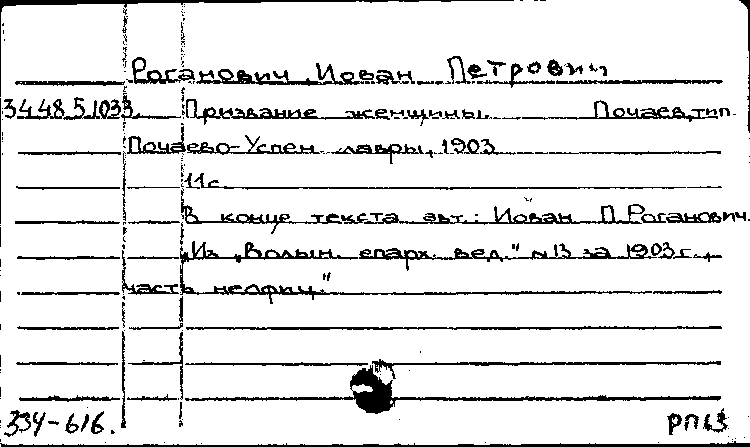 Роганович, Иован Петрович
34.48.5.1033. Призвание женщины. Почаев, тип.
Почаево-Успен. лавры, 1903
11с.
В конце текста авт.: Иован П. Роганович.
„Из „Волын. епарх. вед." №13 за 1903г.,
часть неофиц."
334-616. РП63